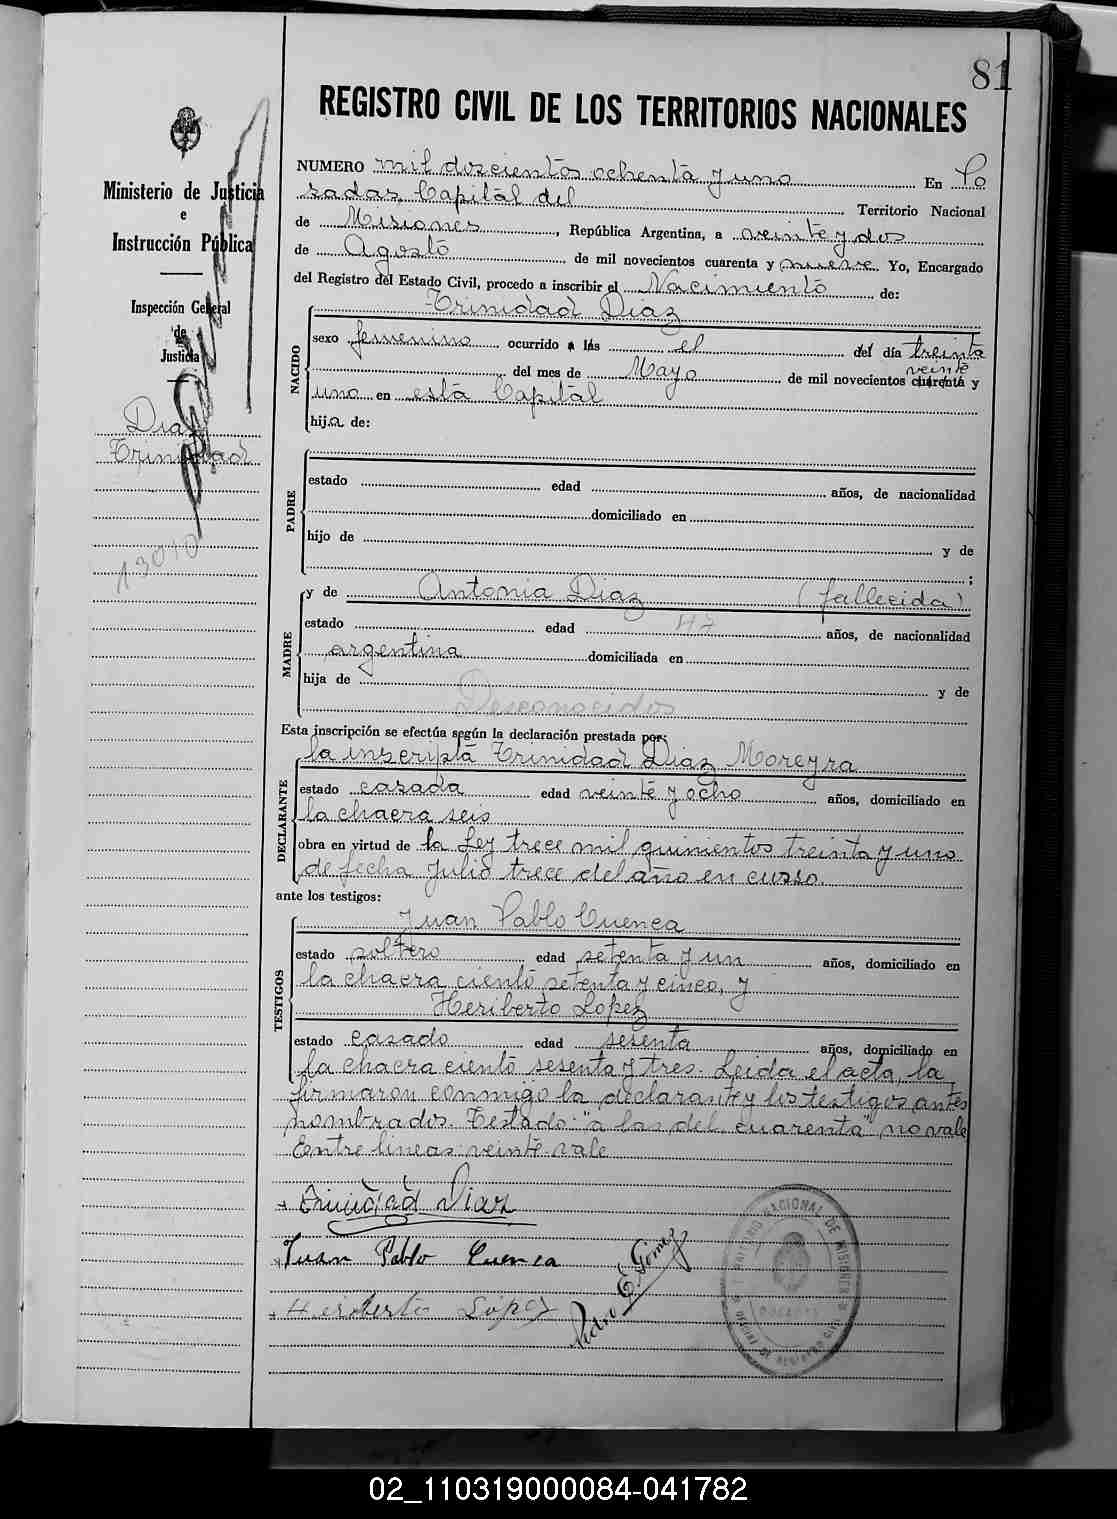 81
REGISTRO CIVIL DE LOS TERRITORIOS NACIONALES
Ministerio de Justicia
e
Instrucción Pública
Inspección General
de
Justicia
Diaz
Trinidad
13010
NUMERO mil doscientos ochenta y uno En Po
sadas, Capital del Territorio Nacional
de Misiones, República Argentina, a veinte y dos
de Agosto de mil novecientos cuarenta y nueve. Yo, Encargado
del Registro del Estado Civil, procedo a inscribir el Nacimiento de:
NACIDO
Trinidad Diaz
sexo femenino ocurrido a lás el del día treinta
veinte
del mes de Mayo de mil novecientos cuarenta y
uno en esta Capital
hija de:
PADRE
estado edad años, de nacionalidad
domiciliado en
hijo de y de
;
MADRE
y de Antonia Diaz (fallecida)
estado edad 47 años, de nacionalidad
argentina domiciliada en
hija de y de
Desconocidos
Esta inscripción se efectúa según la declaración prestada por:
DECLARANTE
la inscripta Trinidad Diaz Moreyra
estado casada edad veinte y ocho años, domiciliado en
la chacra seis
obra en virtud de la Ley trece mil quinientos treinta y uno
de fecha Julio trece del año en curso.
ante los testigos:
TESTIGOS
Juan Pablo Cuenca
estado soltero edad setenta y un años, domiciliado en
la chacra ciento setenta y cinco, y
Heriberto Lopez
estado casado edad sesenta años, domiciliado en
la chacra ciento sesenta y tres. Leida el acta, la
firmaron conmigo la declarante y los testigos antes
nombrados. Testado: "a las del cuarenta" no vale
Entre lineas: veinte-vale
Trinidad Diaz
Juan Pablo Cuenca
Heriberto López
Pedro E. Gómez
TERRITORIO NACIONAL DE MISIONES
POSADAS
OFICINA DE REGISTRO CIVIL
02_110319000084-041782